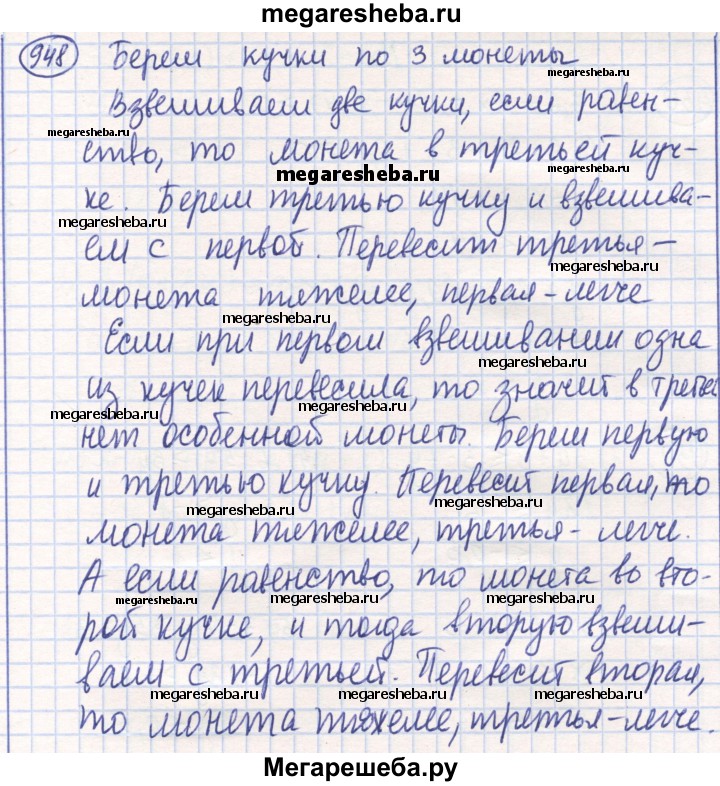 megaresheba.ru
948 Берем кучки по 3 монеты
megaresheba.ru
Взвешиваем две кучки, если равен-
megaresheba.ru
ство, то монета в третьей куч-
megaresheba.ru
ке. Берем третью кучку и взвешива-
megaresheba.ru
ем с первой. Перевесит третья -
megaresheba.ru
монета тяжелее, первая - легче
megaresheba.ru
Если при первом взвешивании одна
megaresheba.ru
из кучек перевесила, то значит в третьей
megaresheba.ru
нет особенной монеты. Берем первую
и третью кучку. Перевесит первая, то
megaresheba.ru megaresheba.ru
монета тяжелее, третья - легче.
А если равенство, то монета во вто-
megaresheba.ru megaresheba.ru
рой кучке, и тогда вторую взвеши-
ваем с третьей. Перевесит вторая,
megaresheba.ru megaresheba.ru megaresheba.ru
то монета тяжелее, третья - легче.
Мегарешеба.ру